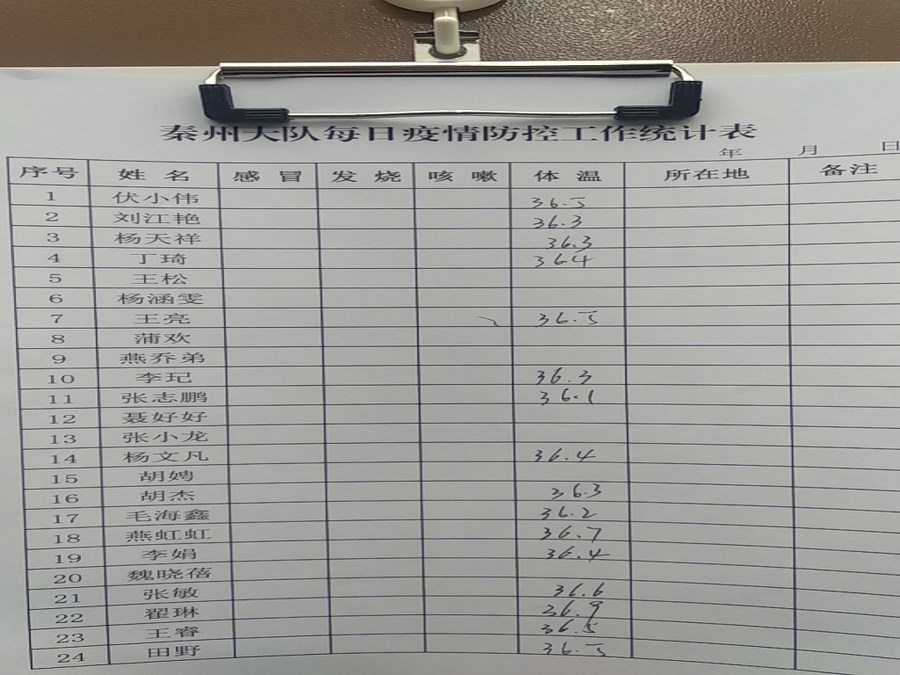 秦州大队每日疫情防控工作统计表
年 月 日
序号 姓名 感冒 发烧 咳嗽 体温 所在地 备注
1 伏小伟 36.5
2 刘江艳 36.3
3 杨天祥 36.3
4 丁琦 364
5 王松
6 杨涵雯
7 王亮 36.5
8 蒲欢
9 燕乔弟
10 李玘 36.3
11 张志鹏 36.1
12 聂好好
13 张小龙
14 杨文凡 36.4
15 胡娉
16 胡杰 36.3
17 毛海鑫 36.2
18 燕虹虹 36.7
19 李娟 36.4
20 魏晓蓓
21 张敏 36.6
22 翟琳 36.9
23 王睿 36.5
24 田野 36.5